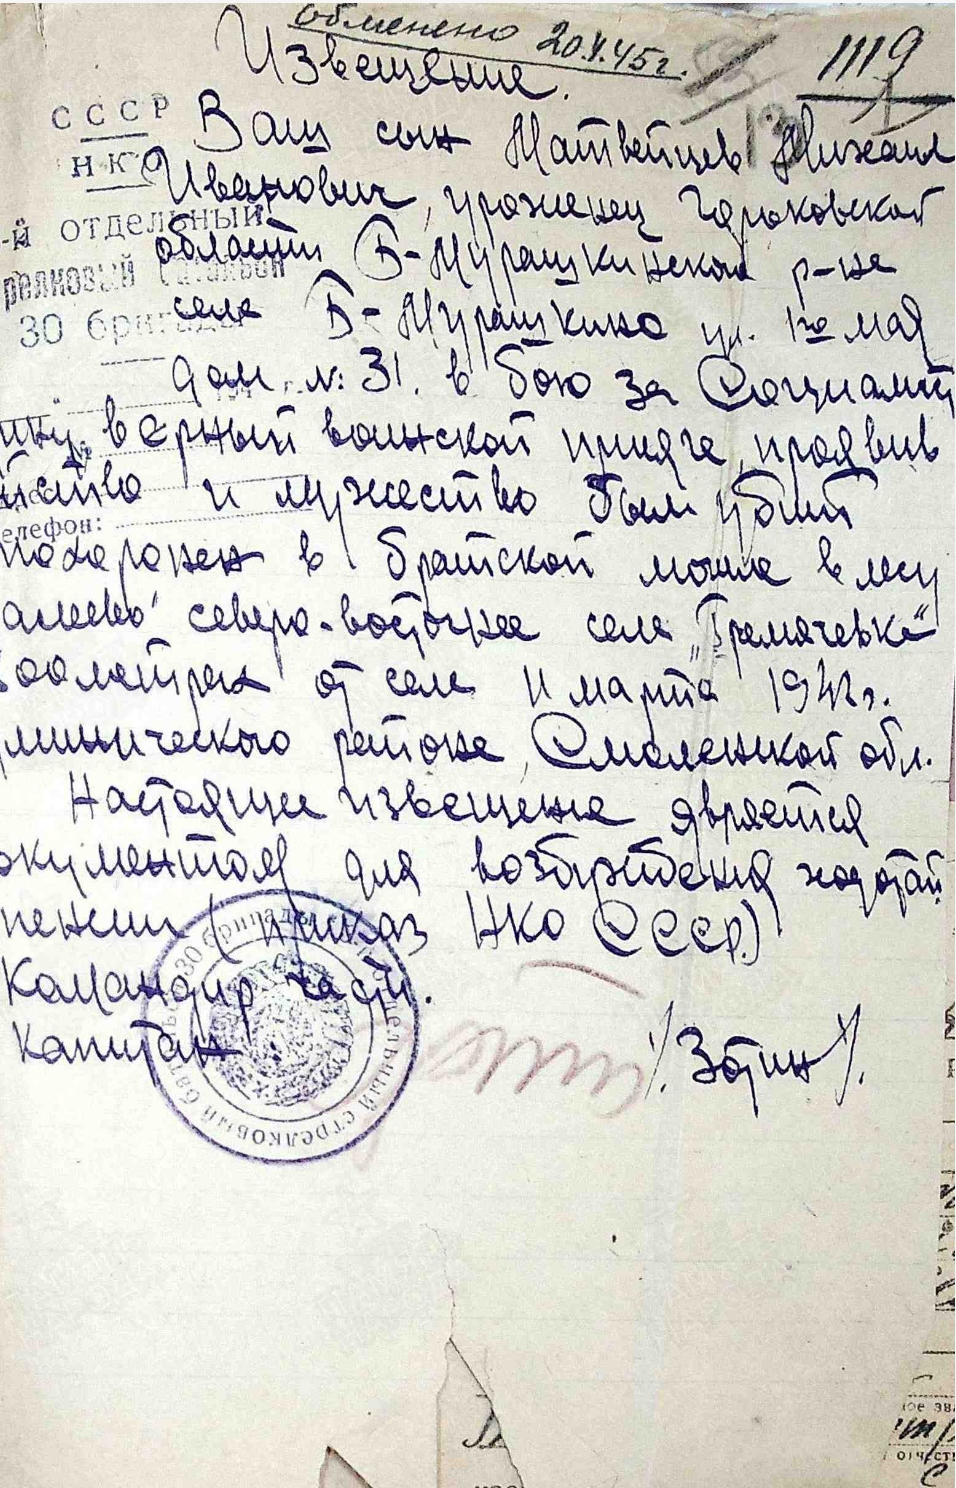 обменено 20.X.45г.
1119
Извещение.
СССР
НКО
-й отдельный
релковый батальон
30 бригады
Ваш сын Матвейцев Михаил
Иванович, уроженец Горьковской
области Б-Мурашкинской р-не
села Б-Мурашкино ул. 1го мая
дом. №: 31. в бою за Социалист
ину, верный воинской присяге, проявив
йство и мужество был убит
елефон:
похоронен в братской могиле в лесу
северо-восточнее села „Гремячевка“
00 метрах от села 11 марта 1942г.
минического районе, Смоленской обл.
Настоящее извещение является
окументом для возбуждения ходатай
пенсии (приказ НКО СССР.)
Командир части.
Капитан /. Зотин /.
30 бригады отдельный стрелковый батальон
ое зва
отчеств